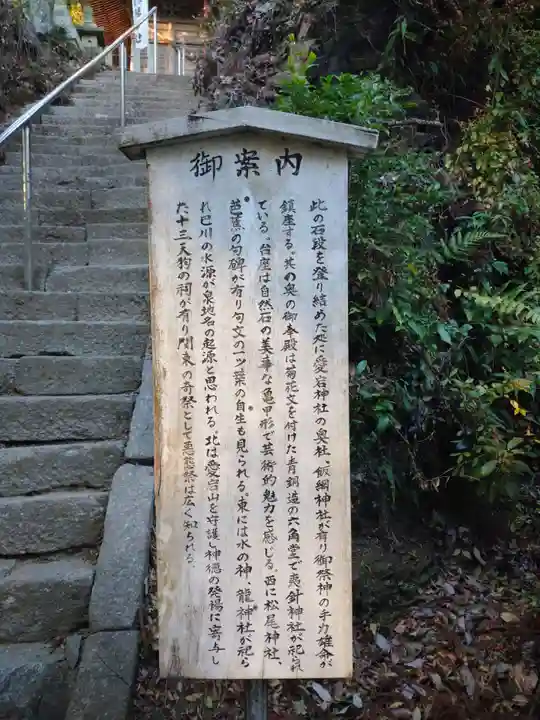 御案内
此の石段を登り詰めた処に愛宕神社の奥社、飯綱神社が有り御祭神の手力雄命が
鎮座する。其の奥の御本殿は菊花文を付けた青銅造の六角堂で夷針神社が祀られ
ている。台座は自然石の美事な亀甲形で芸術的魅力を感じる。西に松尾神社、
芭蕉の句碑が有り句文の一ッ葉の自生も見られる。東には水の神、龍神社が祀ら
れ巴川の水源が泉地名の起源と思われる。北は愛宕山を守護し神徳の発揚に寄与し
た十三天狗の祠が有り関東の奇祭として悪態祭は広く知られる。